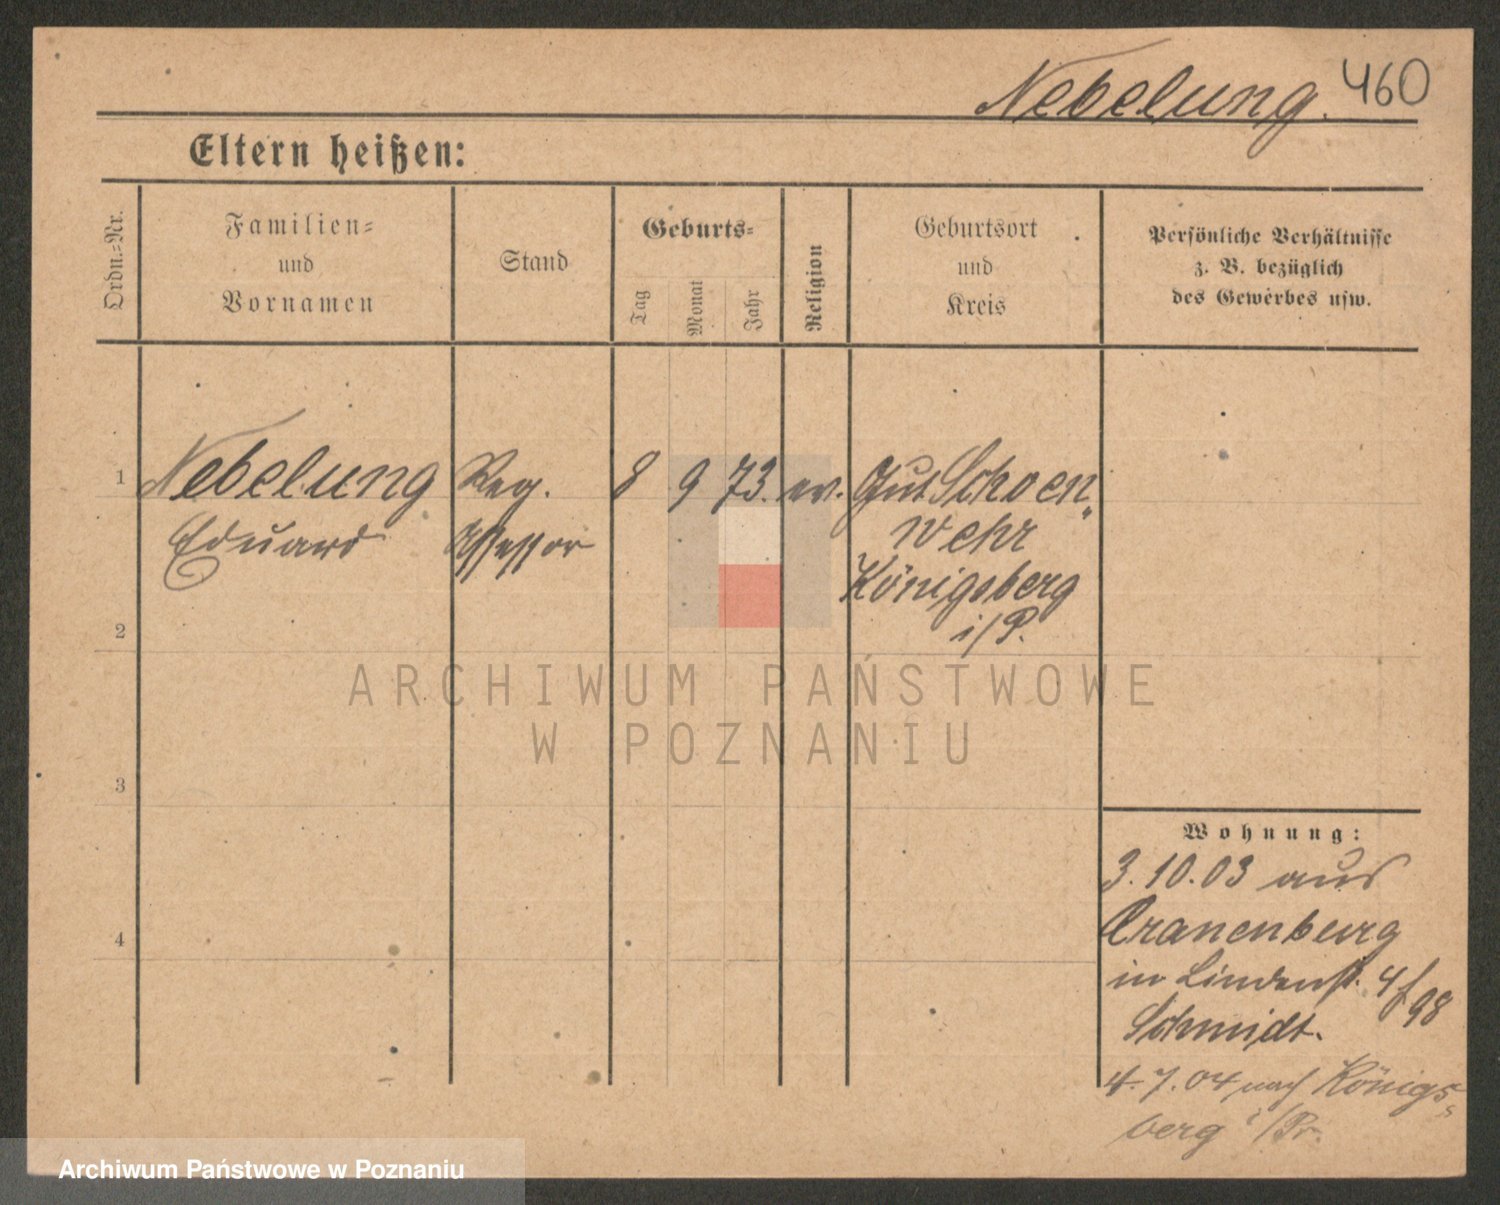 Nebelung. 460
Eltern heißen:
Ordn.=Nr.
Familien=
und
Vornamen
Stand
Geburts=
Tag
Monat
Jahr
Religion
Geburtsort
und
Kreis
Persönliche Verhältnisse
z. B. bezüglich
des Gewerbes usw.
1 Nebelung Reg. 8 9 73. ev. Gut Schoen„
Eduard Assessor wehr
Königsberg
i/P.
2
3
4
ARCHIWUM PAŃSTWOWE
W POZNANIU
Wohnung:
3.10.03 aus
Cranenberg
in Lindenst. 4/98
Schmidt.
4.7.04 nach Königs=
berg i/Pr.
Archiwum Państwowe w Poznaniu